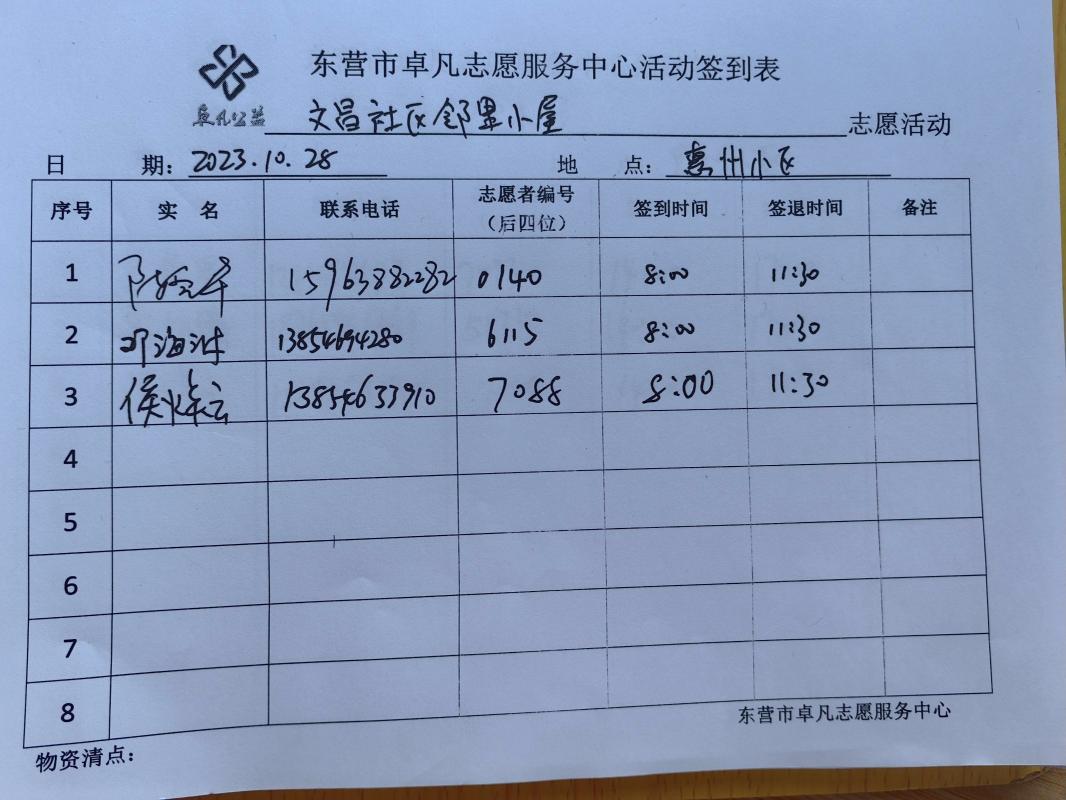 东营市卓凡志愿服务中心活动签到表
卓凡公益 文昌社区邻里小屋 志愿活动
日 期：2023.10.28 地 点：惠州小区
序号 实 名 联系电话 志愿者编号（后四位） 签到时间 签退时间 备注
1 15963882282 0140 8:00 11:30
2 邓海涛 13854694280 6115 8:00 11:30
3 侯 云 13854633910 7088 8:00 11:30
4
5
6
7
8
东营市卓凡志愿服务中心
物资清点：